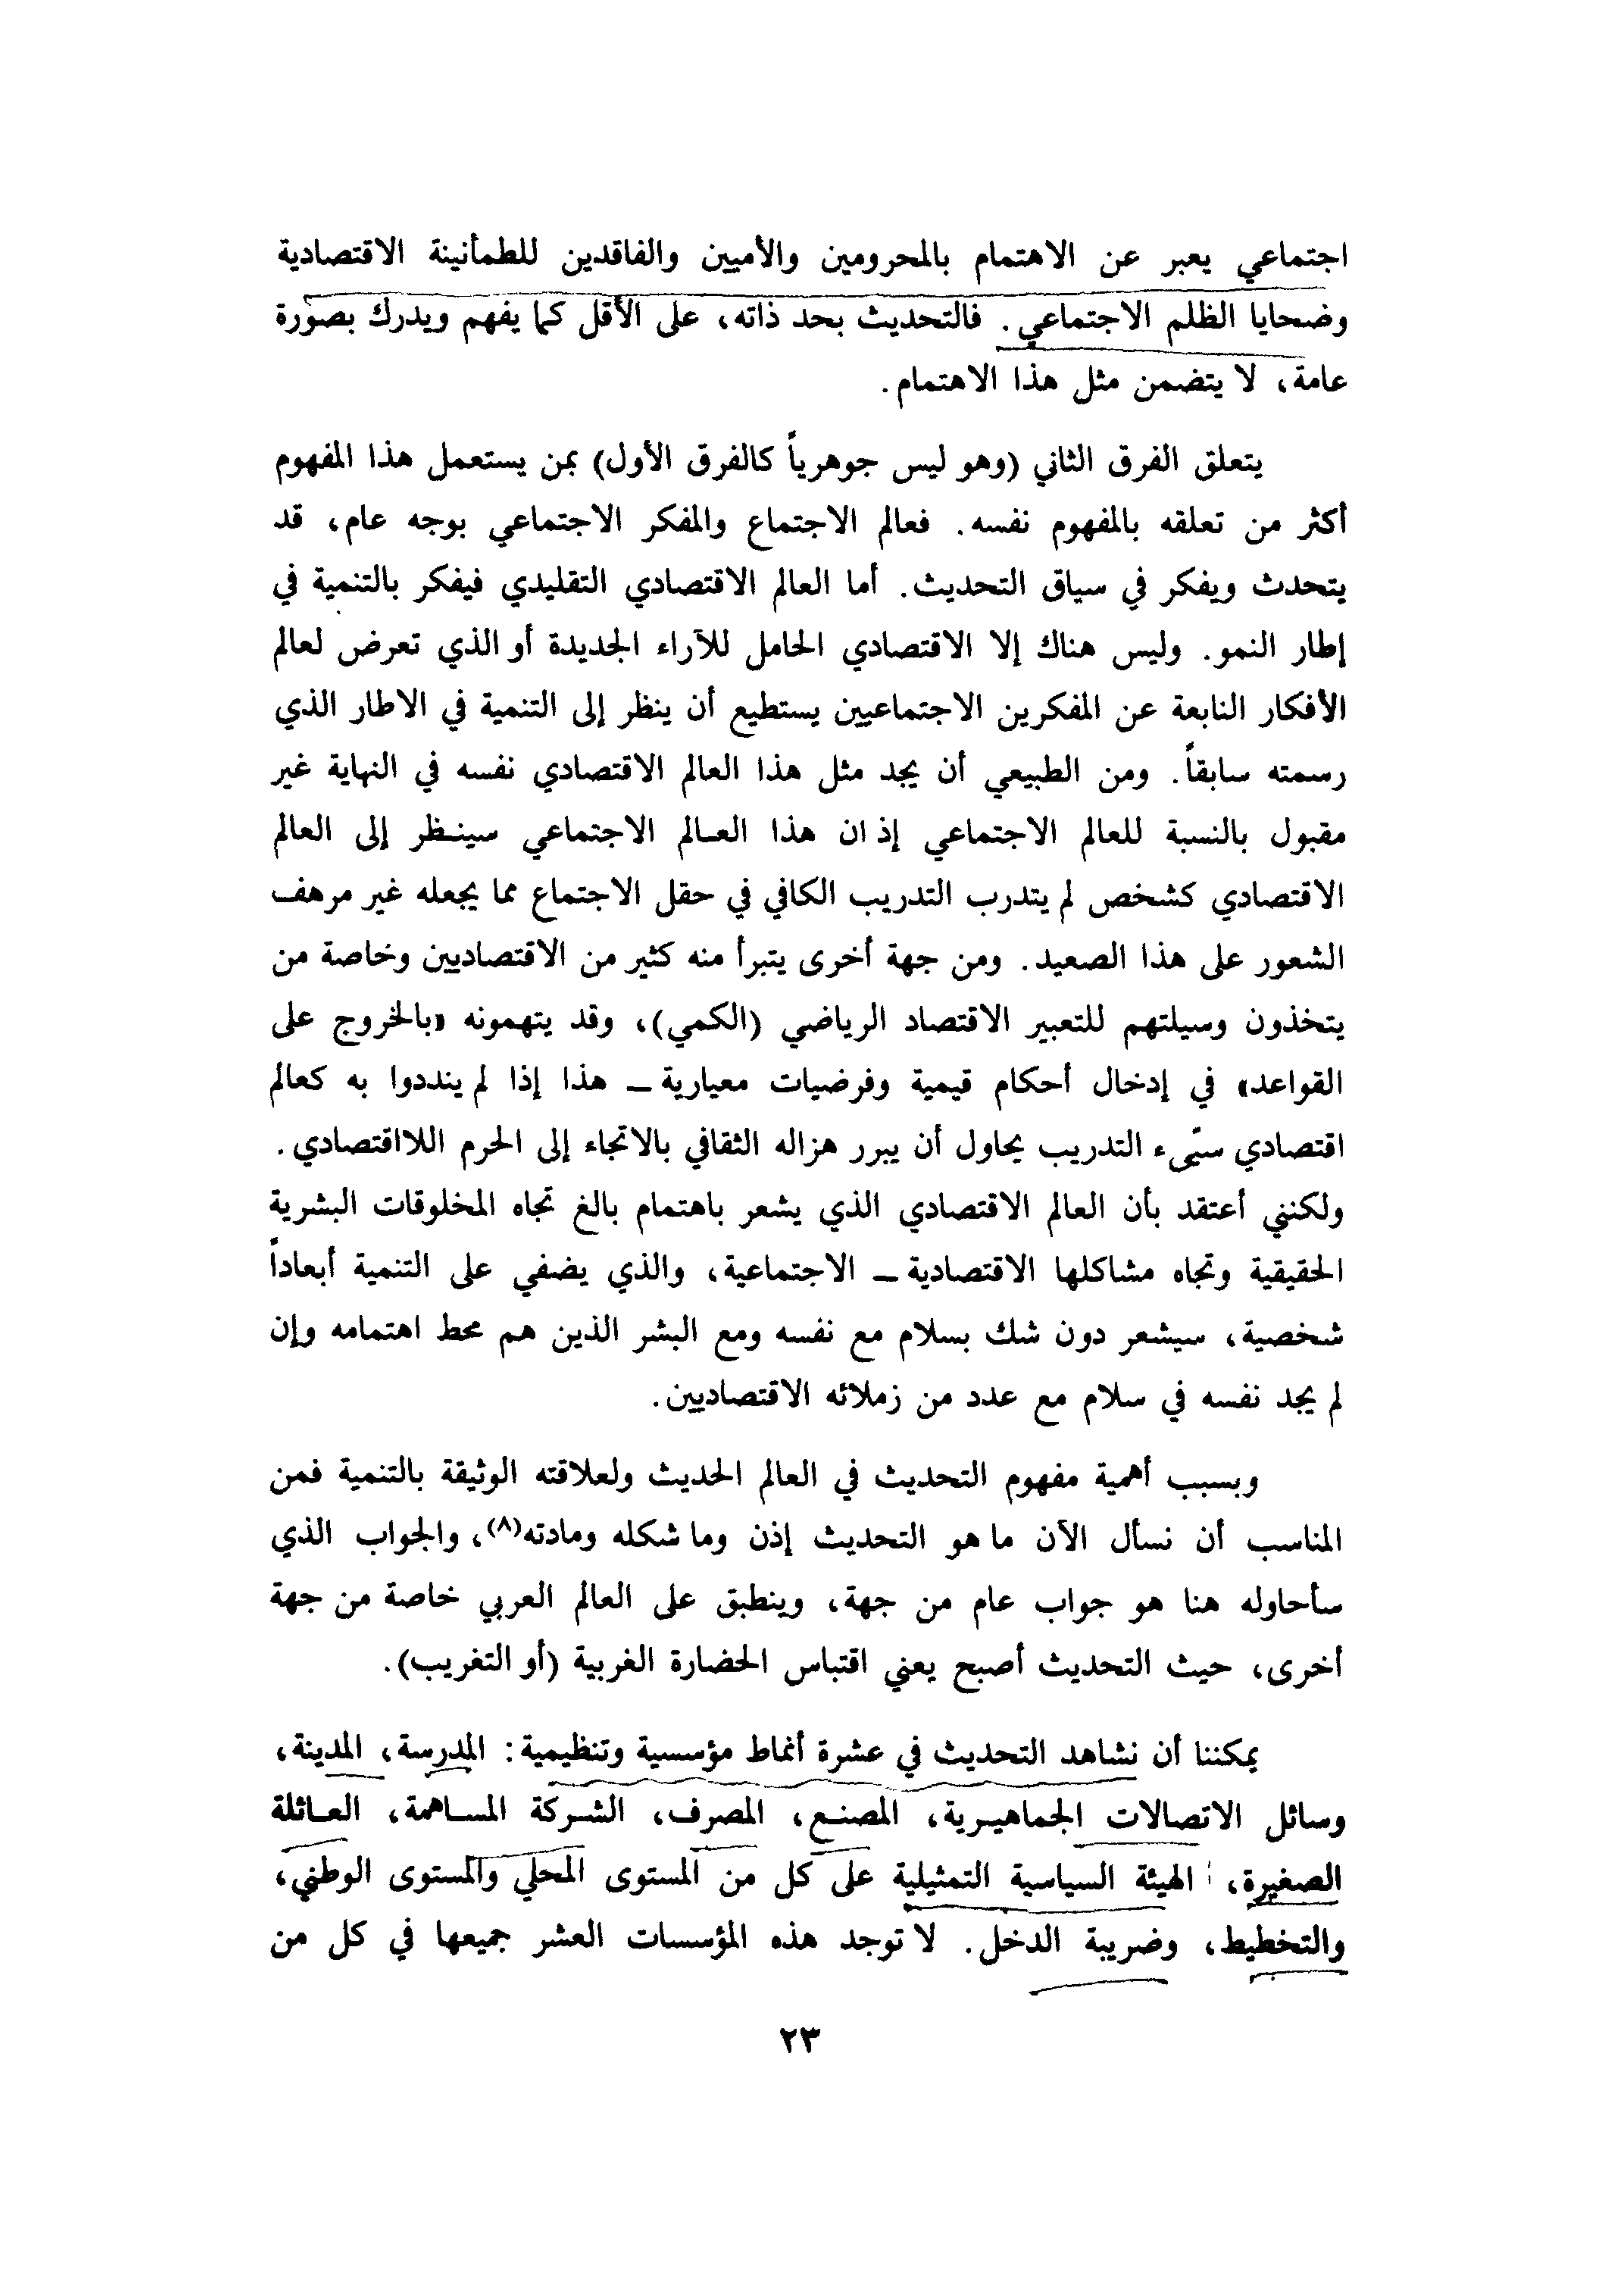 اجتماعي يعبر عن الاهتمام بالمحرومين والأميين والفاقدين للطمأنينة الاقتصادية
وضحايا الظلم الاجتماعي. فالتحديث بحد ذاته، على الأقل كما يفهم ويدرك بصورة
عامة، لا يتضمن مثل هذا الاهتمام.
يتعلق الفرق الثاني (وهو ليس جوهرياً كالفرق الأول) بمن يستعمل هذا المفهوم
أكثر من تعلقه بالمفهوم نفسه. فعالم الاجتماع والمفكر الاجتماعي بوجه عام، قد
يتحدث ويفكر في سياق التحديث. أما العالم الاقتصادي التقليدي فيفكر بالتنمية في
إطار النمو. وليس هناك إلا الاقتصادي الحامل للآراء الجديدة أو الذي تعرض لعالم
الأفكار النابعة عن المفكرين الاجتماعيين يستطيع أن ينظر إلى التنمية في الاطار الذي
رسمته سابقاً. ومن الطبيعي أن يجد مثل هذا العالم الاقتصادي نفسه في النهاية غير
مقبول بالنسبة للعالم الاجتماعي إذ ان هذا العـالم الاجتماعي سينـظر إلى العالم
الاقتصادي كشخص لم يتدرب التدريب الكافي في حقل الاجتماع مما يجعله غير مرهف
الشعور على هذا الصعيد. ومن جهة أخرى يتبرأ منه كثير من الاقتصاديين وخاصة من
يتخذون وسيلتهم للتعبير الاقتصاد الرياضي (الكمي)، وقد يتهمونه «بالخروج على
القواعد» في إدخال أحكام قيمية وفرضيات معيارية ــ هذا إذا لم ينددوا به كعالم
اقتصادي سيّىء التدريب يحاول أن يبرر هزاله الثقافي بالاتجاء إلى الحرم اللااقتصادي.
ولكنني أعتقد بأن العالم الاقتصادي الذي يشعر باهتمام بالغ تجاه المخلوقات البشرية
الحقيقية وتجاه مشاكلها الاقتصادية ــ الاجتماعية، والذي يضفي على التنمية أبعاداً
شخصية، سيشعر دون شك بسلام مع نفسه ومع البشر الذين هم محط اهتمامه وإن
لم يجد نفسه في سلام مع عدد من زملائه الاقتصاديين.
وبسبب أهمية مفهوم التحديث في العالم الحديث ولعلاقته الوثيقة بالتنمية فمن
المناسب أن نسأل الآن ما هو التحديث إذن وما شكله ومادته(٨)، والجواب الذي
سأحاوله هنا هو جواب عام من جهة، وينطبق على العالم العربي خاصة من جهة
أخرى، حيث التحديث أصبح يعني اقتباس الحضارة الغربية (أو التغريب).
يمكننا أن نشاهد التحديث في عشرة أنماط مؤسسية وتنظيمية: المدرسة، المدينة،
وسائل الاتصالات الجماهيـرية، المصنـع، المصرف، الشـركة المسـاهمة، العـائلة
الصغيرة، الهيئة السياسية التمثيلية على كل من المستوى المحلي والمستوى الوطني،
والتخطيط، وضريبة الدخل. لا توجد هذه المؤسسات العشر جميعها في كل من
٢٣